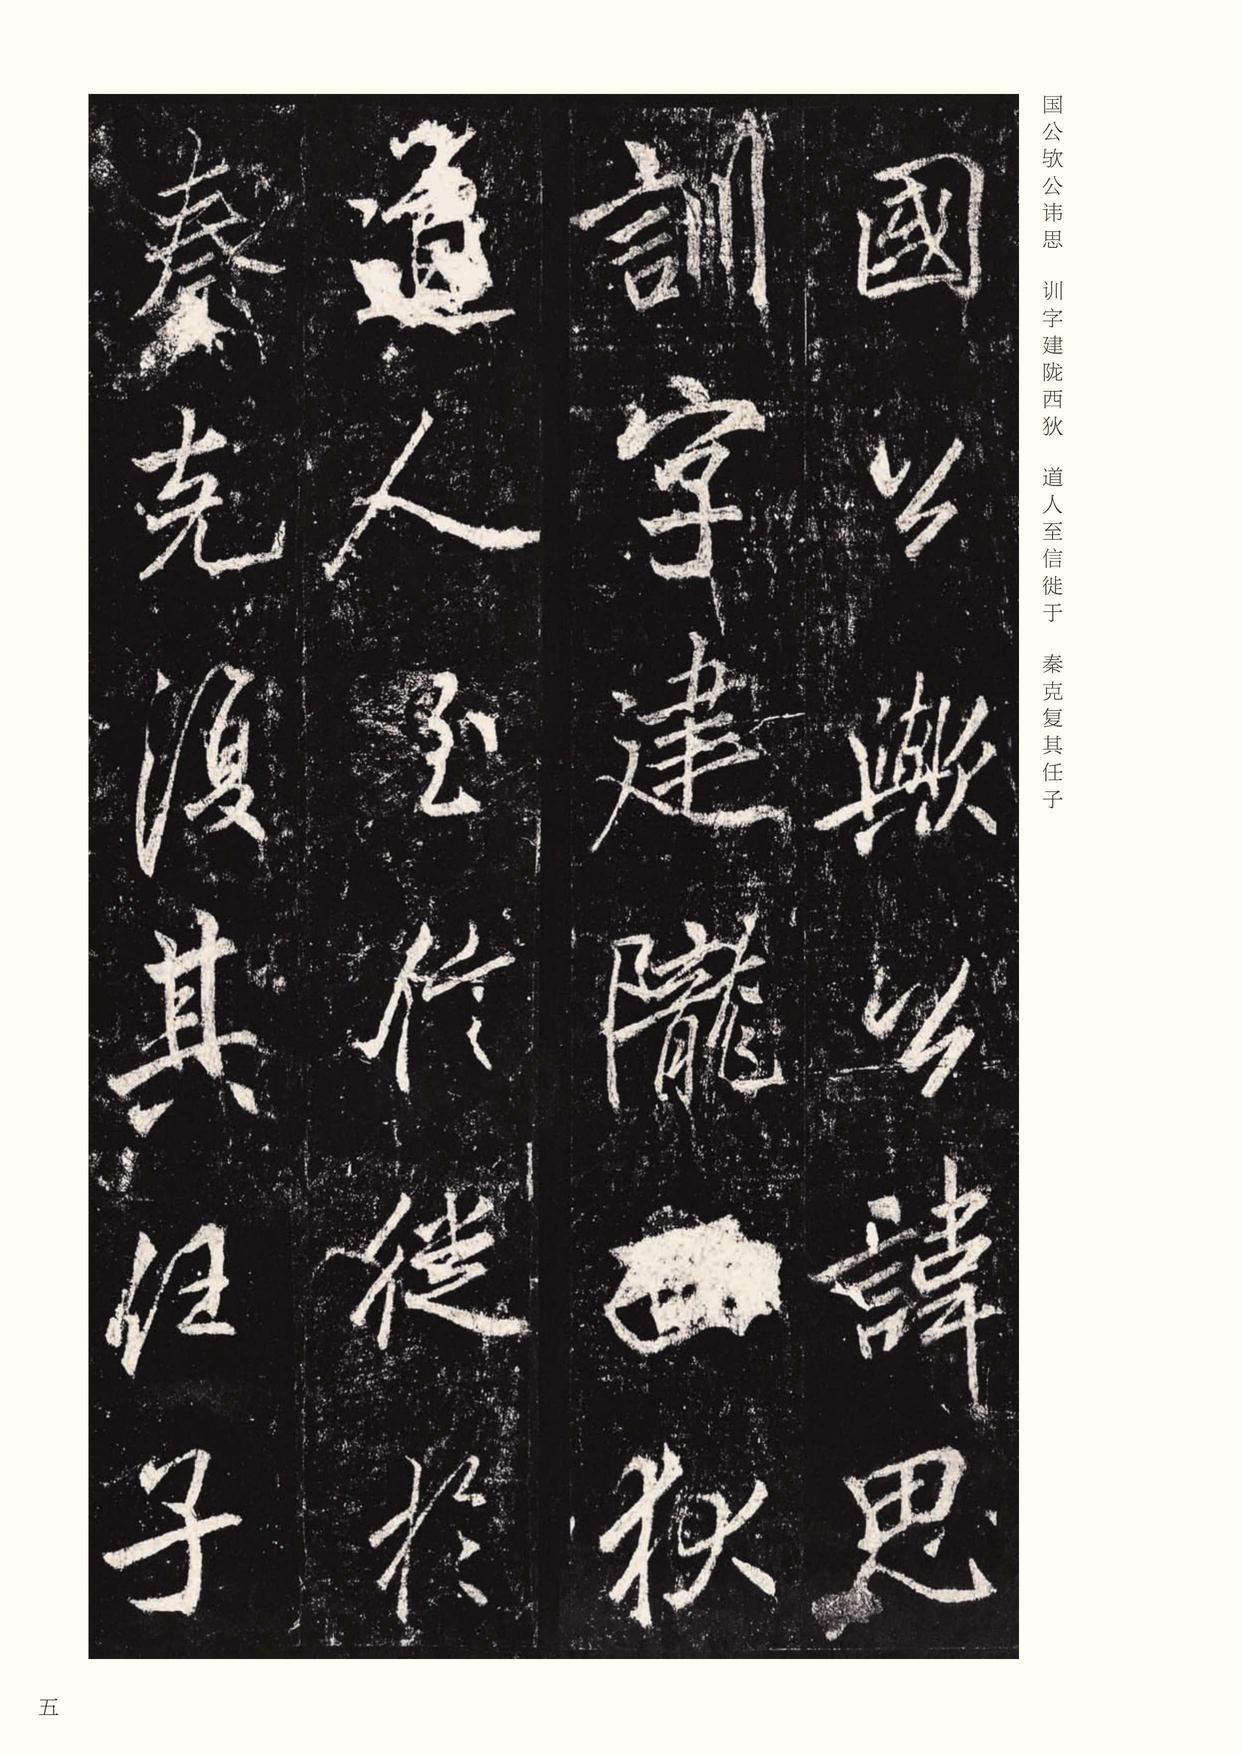 国公欤公讳思　训字建陇西狄　道人至信徙于　秦克复其任子
國公歟公諱思
訓字建隴西狄
道人至信徙於
秦克復其任子
五